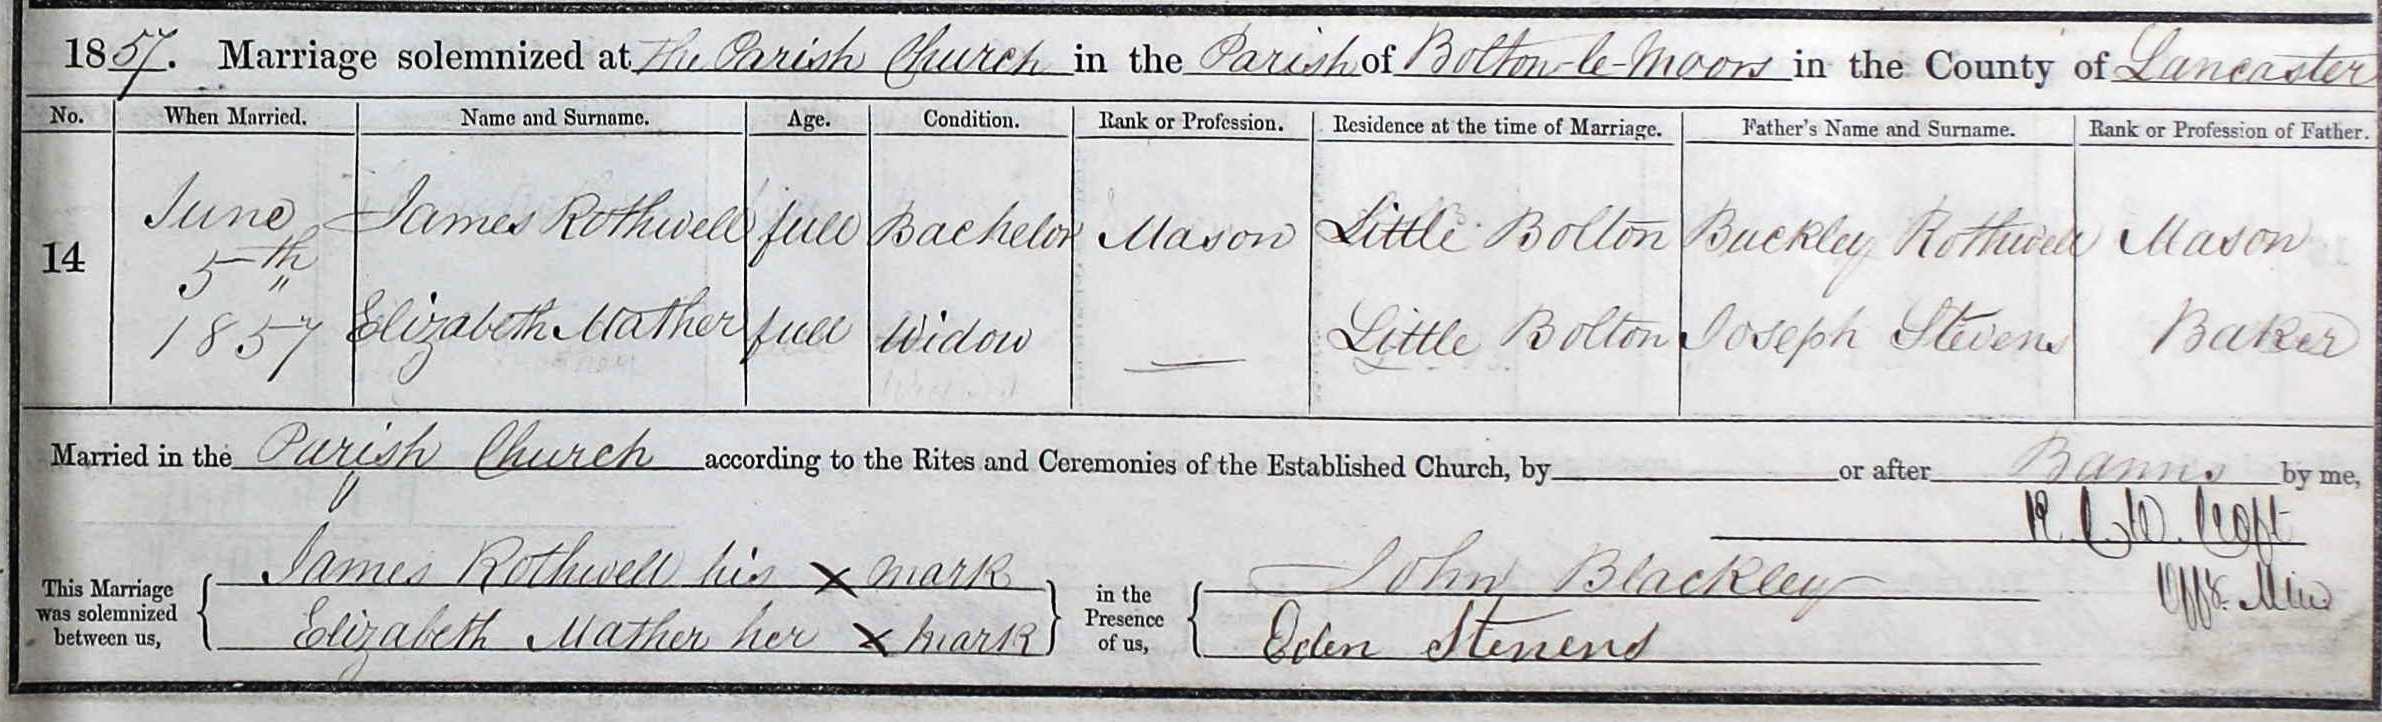 1857. Marriage solemnized at The Parish Church in the Parish of Bolton-le-Moors in the County of Lancaster
No. When Married. Name and Surname. Age. Condition. Rank or Profession. Residence at the time of Marriage. Father's Name and Surname. Rank or Profession of Father.
14 June 5th 1857
James Rothwell full Bachelor Mason Little Bolton Buckley Rothwell Mason
Elizabeth Mather full Widow — Little Bolton Joseph Stevens Baker
Married in the Parish Church according to the Rites and Ceremonies of the Established Church, by or after Banns by me,
R. C. W. Croft
Offg. Min
This Marriage was solemnized between us,
James Rothwell his X mark
Elizabeth Mather her X mark
in the Presence of us,
John Blackley
Eden Stenens